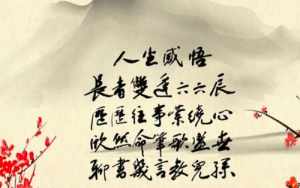 人生感悟
長者雙逢六六辰
歷歷往事縈繞心
欣然命筆歌盛世
聊書箴言教兒孫